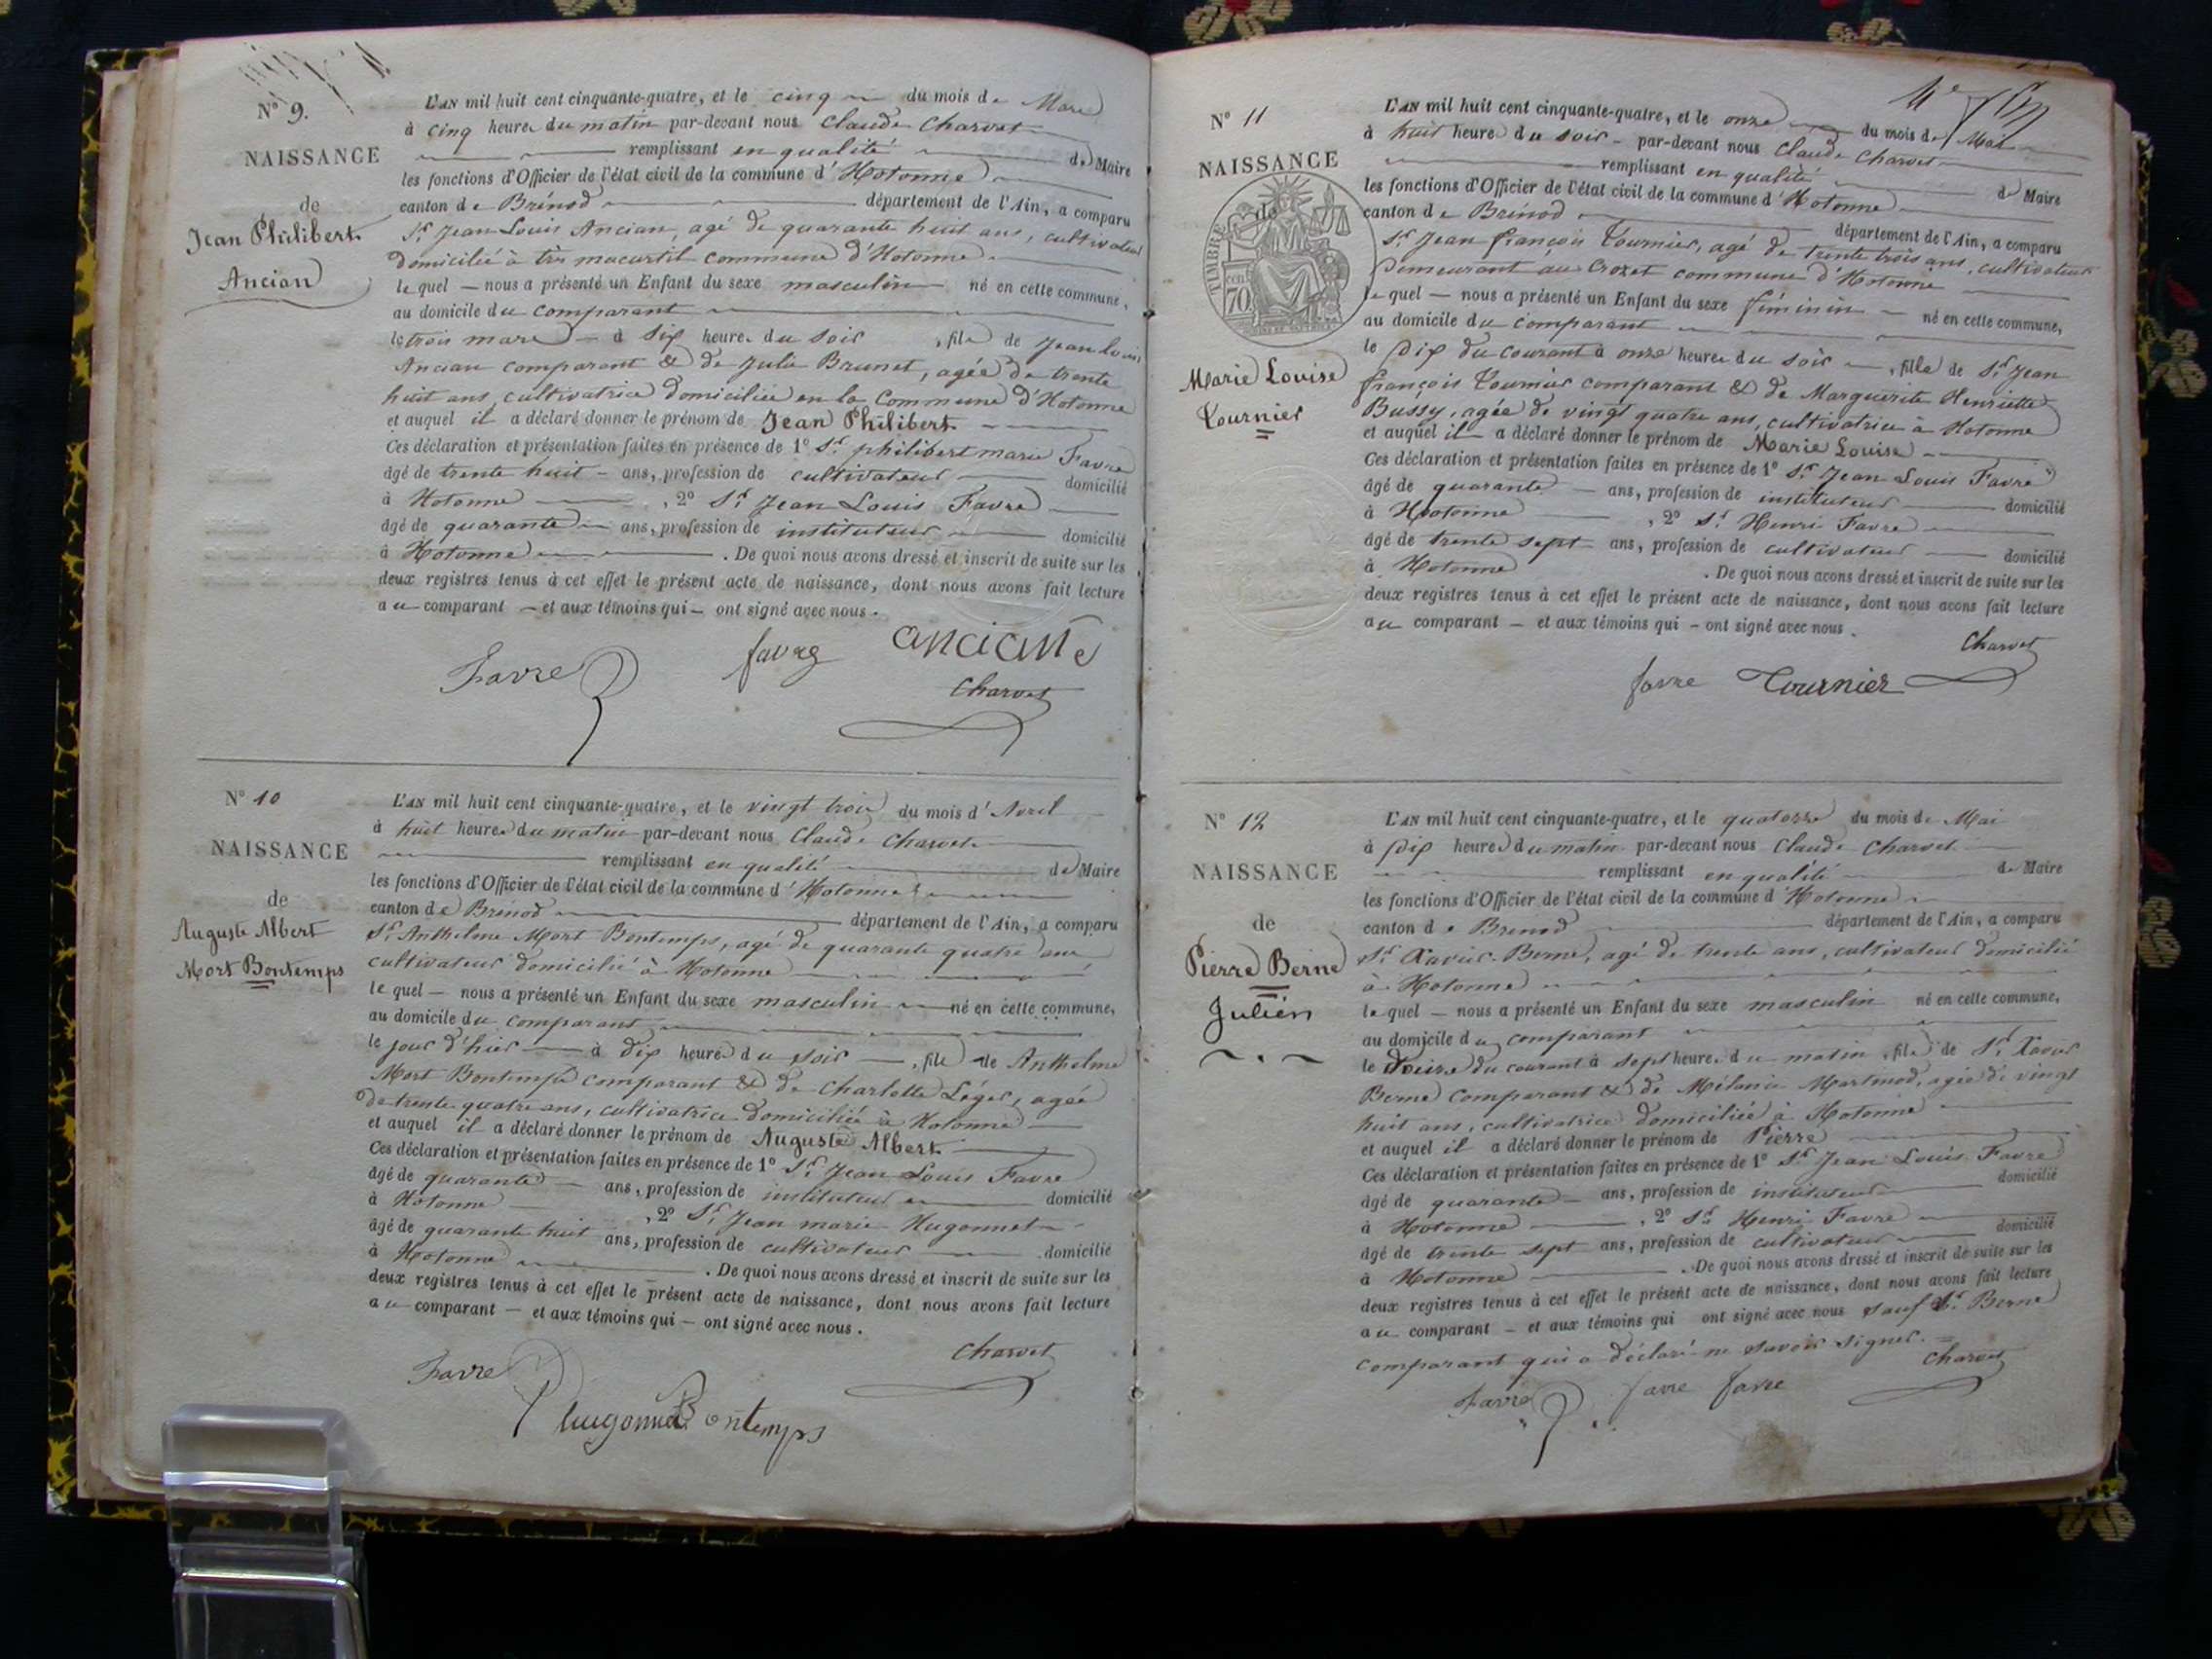 N° 9.
NAISSANCE
de
Jean Philibert
Ancian
L'AN mil huit cent cinquante-quatre, et le cinq du mois de Mars
à cinq heures du matin par-devant nous Claude Charvet
remplissant en qualité de Maire
les fonctions d'Officier de l'état civil de la commune d'Hotonne
canton de Brénod département de l'Ain, a comparu
Sr. Jean Louis Ancian, agé de quarante huit ans, cultivateur
domicilié à commune d'Hotonne
lequel — nous a présenté un Enfant du sexe masculin né en cette commune,
au domicile du comparant
le trois mars — à six heures du soir, fils de Jean Louis
Ancian comparant & de Julie Brunet, agée de trente
huit ans, cultivatrice domiciliée en la Commune d'Hotonne
et auquel il a déclaré donner le prénom de Jean Philibert
Ces déclaration et présentation faites en présence de 1° Sr. philibert marie Favre
âgé de trente huit — ans, profession de cultivateur domicilié
à Hotonne , 2° Sr. Jean Louis Favre
âgé de quarante ans, profession de instituteur domicilié
à Hotonne . De quoi nous avons dressé et inscrit de suite sur les
deux registres tenus à cet effet le présent acte de naissance, dont nous avons fait lecture
au comparant — et aux témoins qui — ont signé avec nous.
Favre favre anciant
Charvet
N° 10
NAISSANCE
de
Auguste Albert
Mort Bontemps
L'AN mil huit cent cinquante-quatre, et le vingt trois du mois d'Avril
à huit heures du matin par-devant nous Claude Charvet
remplissant en qualité de Maire
les fonctions d'Officier de l'état civil de la commune d'Hotonne
canton de Brénod département de l'Ain, a comparu
Sr. Anthelme Mort Bontemps, agé de quarante quatre ans
cultivateur domicilié à Hotonne
lequel — nous a présenté un Enfant du sexe masculin né en cette commune,
au domicile du comparant
le jour d'hier — à dix heures du soir —, fils de Anthelme
Mort Bontemps comparant & de Charlotte Léger, agée
de trente quatre ans, cultivatrice domiciliée à Hotonne
et auquel il a déclaré donner le prénom de Auguste Albert
Ces déclaration et présentation faites en présence de 1° Sr. Jean Louis Favre
âgé de quarante — ans, profession de instituteur domicilié
à Hotonne , 2° Sr. Jean marie Hugonnet
âgé de quarante huit ans, profession de cultivateur domicilié
à Hotonne . De quoi nous avons dressé et inscrit de suite sur les
deux registres tenus à cet effet le présent acte de naissance, dont nous avons fait lecture
au comparant — et aux témoins qui — ont signé avec nous.
Charvet
Favre
hugonnet Bontemps
N° 11
NAISSANCE
de
TIMBRE
70
Marie Louise
Tournier
L'AN mil huit cent cinquante-quatre, et le onze du mois de Mai
à huit heures du soir — par-devant nous Claude Charvet
remplissant en qualité de Maire
les fonctions d'Officier de l'état civil de la commune d'Hotonne
canton de Brénod département de l'Ain, a comparu
Sr. Jean françois Tournier, agé de trente trois ans, cultivateur
Demeurant au Crozet commune d'Hotonne
lequel — nous a présenté un Enfant du sexe féminin — né en cette commune,
au domicile du comparant
le dix du courant à onze heures du soir —, fille de Sr. Jean
françois Tournier comparant & de Marguerite Henriette
Bussy, agée de vingt quatre ans, cultivatrice à Hotonne
et auquel il a déclaré donner le prénom de Marie Louise
Ces déclaration et présentation faites en présence de 1° Sr. Jean Louis Favre
âgé de quarante — ans, profession de instituteur domicilié
à Hotonne , 2° Sr. Henri Favre
âgé de trente sept ans, profession de cultivateur domicilié
à Hotonne . De quoi nous avons dressé et inscrit de suite sur les
deux registres tenus à cet effet le présent acte de naissance, dont nous avons fait lecture
au comparant — et aux témoins qui — ont signé avec nous.
Charvet
favre Tournier
N° 12
NAISSANCE
de
Pierre Berne
Julien
L'AN mil huit cent cinquante-quatre, et le quatorze du mois de Mai
à dix heures du matin par-devant nous Claude Charvet
remplissant en qualité de Maire
les fonctions d'Officier de l'état civil de la commune d'Hotonne
canton de Brénod département de l'Ain, a comparu
Sr. Xavier Berne, agé de trente ans, cultivateur domicilié
à Hotonne
lequel — nous a présenté un Enfant du sexe masculin né en cette commune,
au domicile du comparant
le douze du courant à sept heures du matin, fils de Sr. Xavier
Berne comparant & de Mélanie Martinod, agée de vingt
huit ans, cultivatrice domiciliée à Hotonne
et auquel il a déclaré donner le prénom de Pierre
Ces déclaration et présentation faites en présence de 1° Sr. Jean Louis Favre
âgé de quarante — ans, profession de instituteur domicilié
à Hotonne , 2° Sr. Henri Favre
âgé de trente sept ans, profession de cultivateur domicilié
à Hotonne . De quoi nous avons dressé et inscrit de suite sur les
deux registres tenus à cet effet le présent acte de naissance, dont nous avons fait lecture
au comparant — et aux témoins qui ont signé avec nous sauf Sr. Berne
comparant qui a déclaré ne savoir signer.
Charvet
Favre favre favre